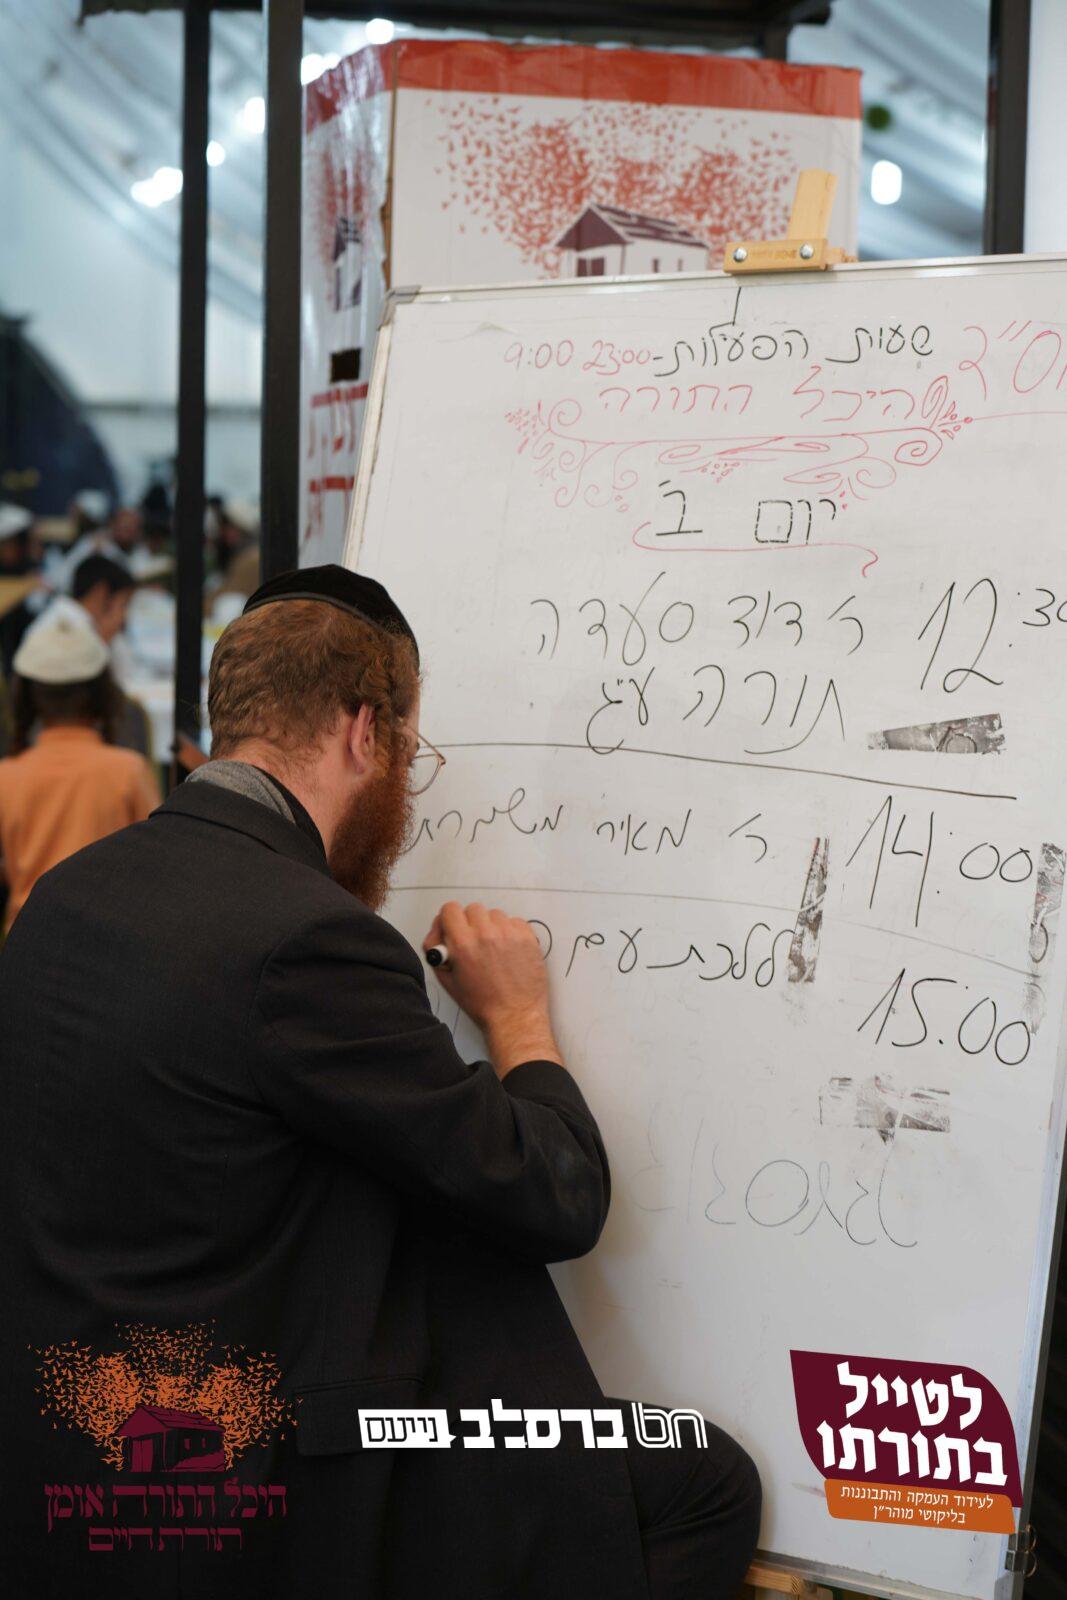 שעות הפעלות - 9:00 23:00
היכל התורה
יום ב'
12:30 ר' דוד סעדה
תורה ע"ג
14:00 ר' מאיר
15:00 ללכת עם
היכל התורה אומן
תורת חיים
ברסלב נייעס
לטייל
בתורתו
לעידוד העמקה והתבוננות
בליקוטי מוהר"ן